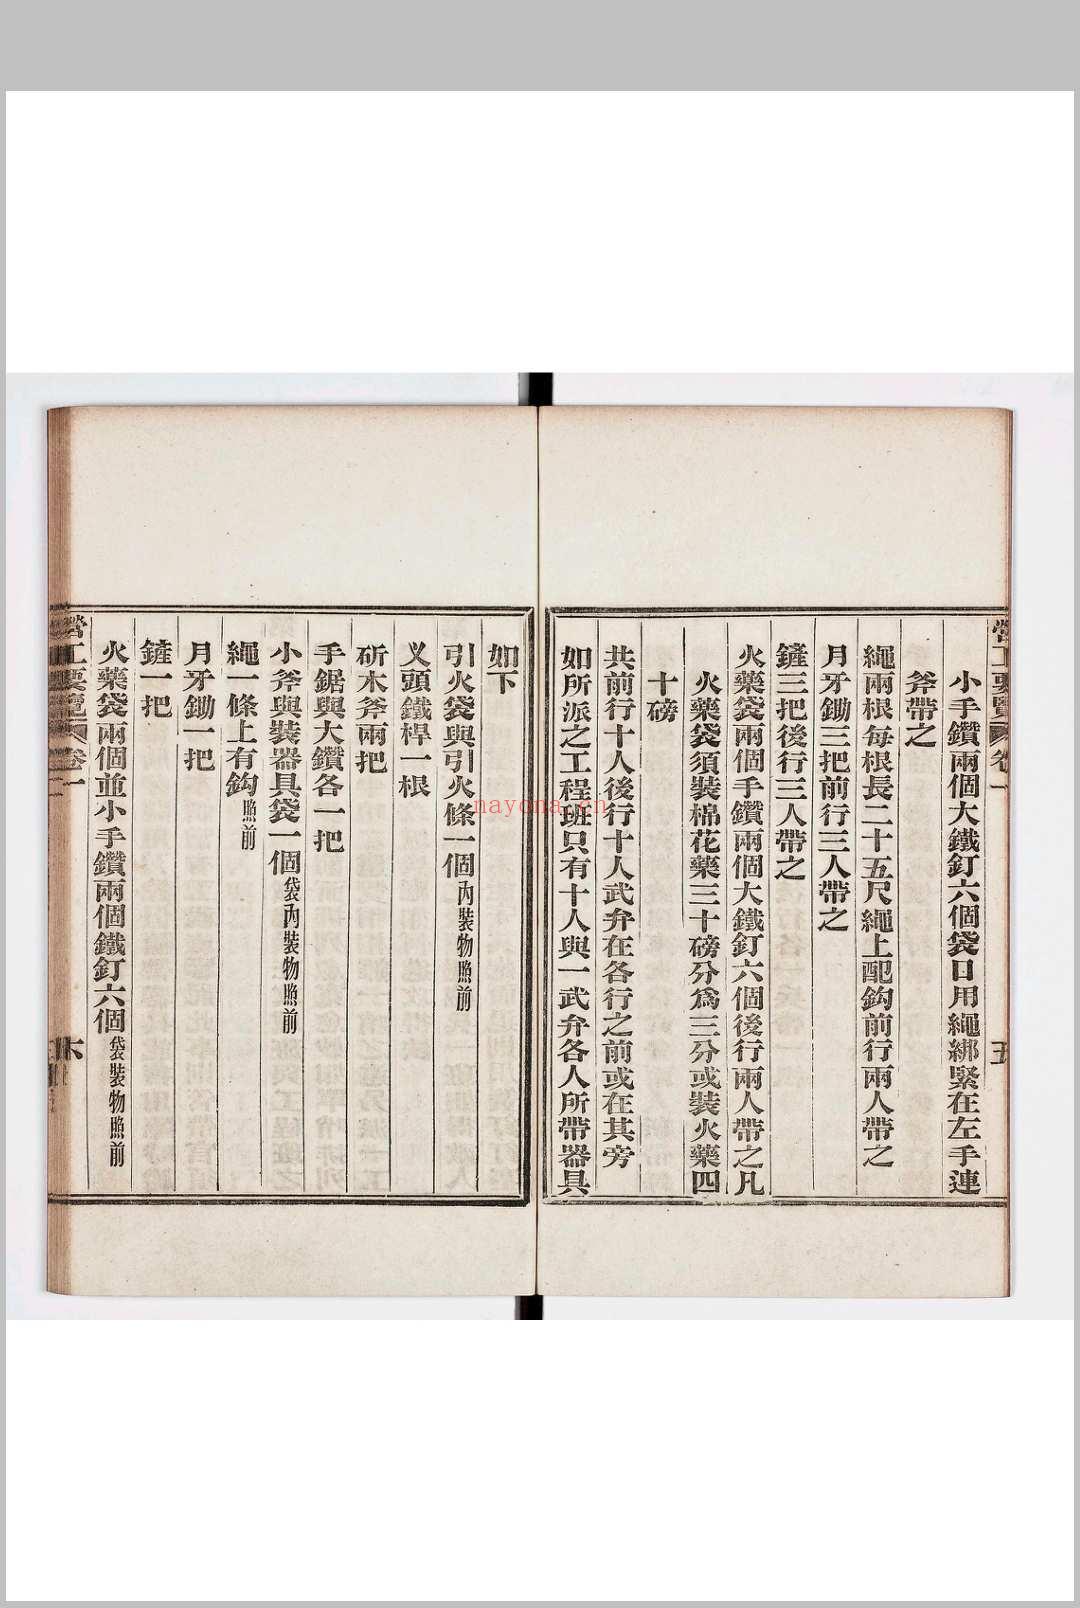 營工要覽 卷一 五
小手鑽兩個大鐵釘六個袋口用繩綁緊在左手連
斧帶之
繩兩根每根長二十五尺繩上配鈎前行兩人帶之
月牙鋤三把前行三人帶之
鏟三把後行三人帶之
火藥袋兩個手鑽兩個大鐵釘六個後行兩人帶之凡
火藥袋須裝棉花藥三十磅分爲三分或裝火藥四
十磅
共前行十人後行十人武弁在各行之前或在其旁
如所派之工程班只有十人與一武弁各人所帶器具
如下
引火袋與引火條一個內裝物照前
义頭鐵桿一根
斫木斧兩把
手鋸與大鑽各一把
小斧與裝器具袋一個袋內裝物照前
繩一條上有鈎照前
月牙鋤一把
鏟一把
火藥袋兩個並小手鑽兩個鐵釘六個袋裝物照前
營工要覽 卷一 六
nayona.cn